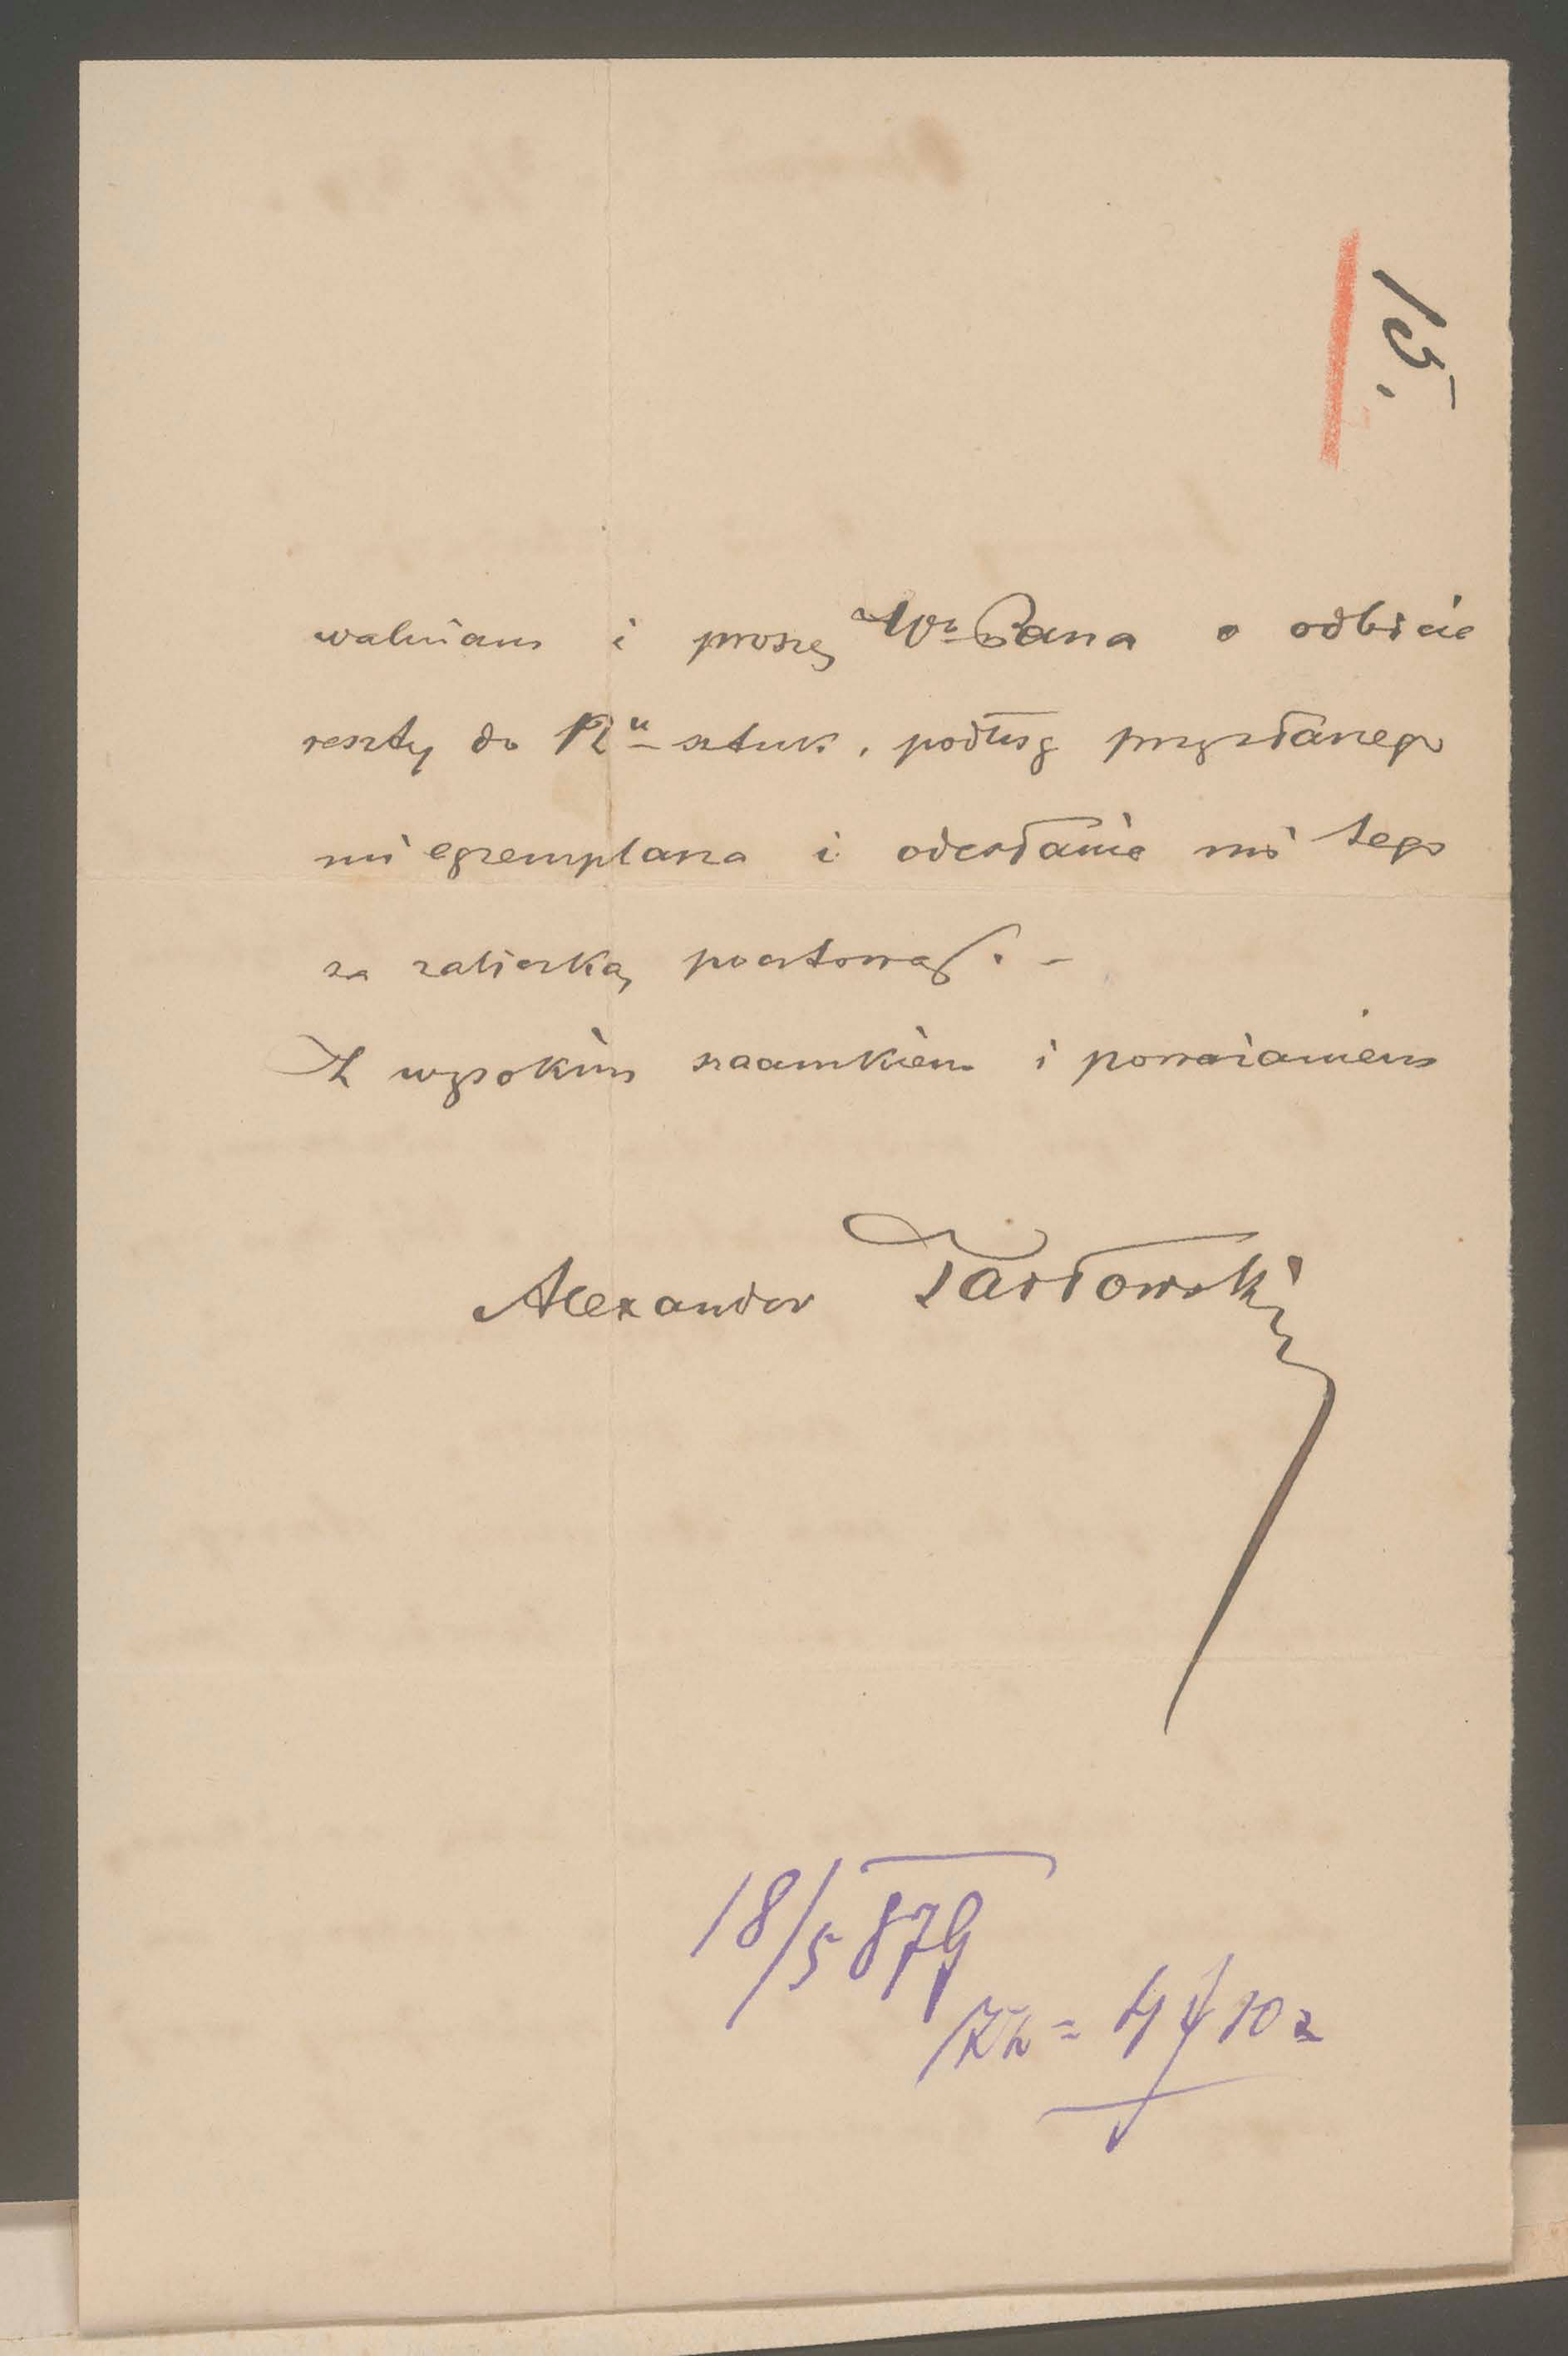 15.
walniam i proszę Wr Pana o odbicie
reszty do 12u sztuk, podług przysłanego
mi egzemplarza i odesłanie mi tego
za zaliczką pocztową. –
Z wysokim szacunkiem i poważaniem
Alexander Tarłowski
18/5 879
= 4 f 10